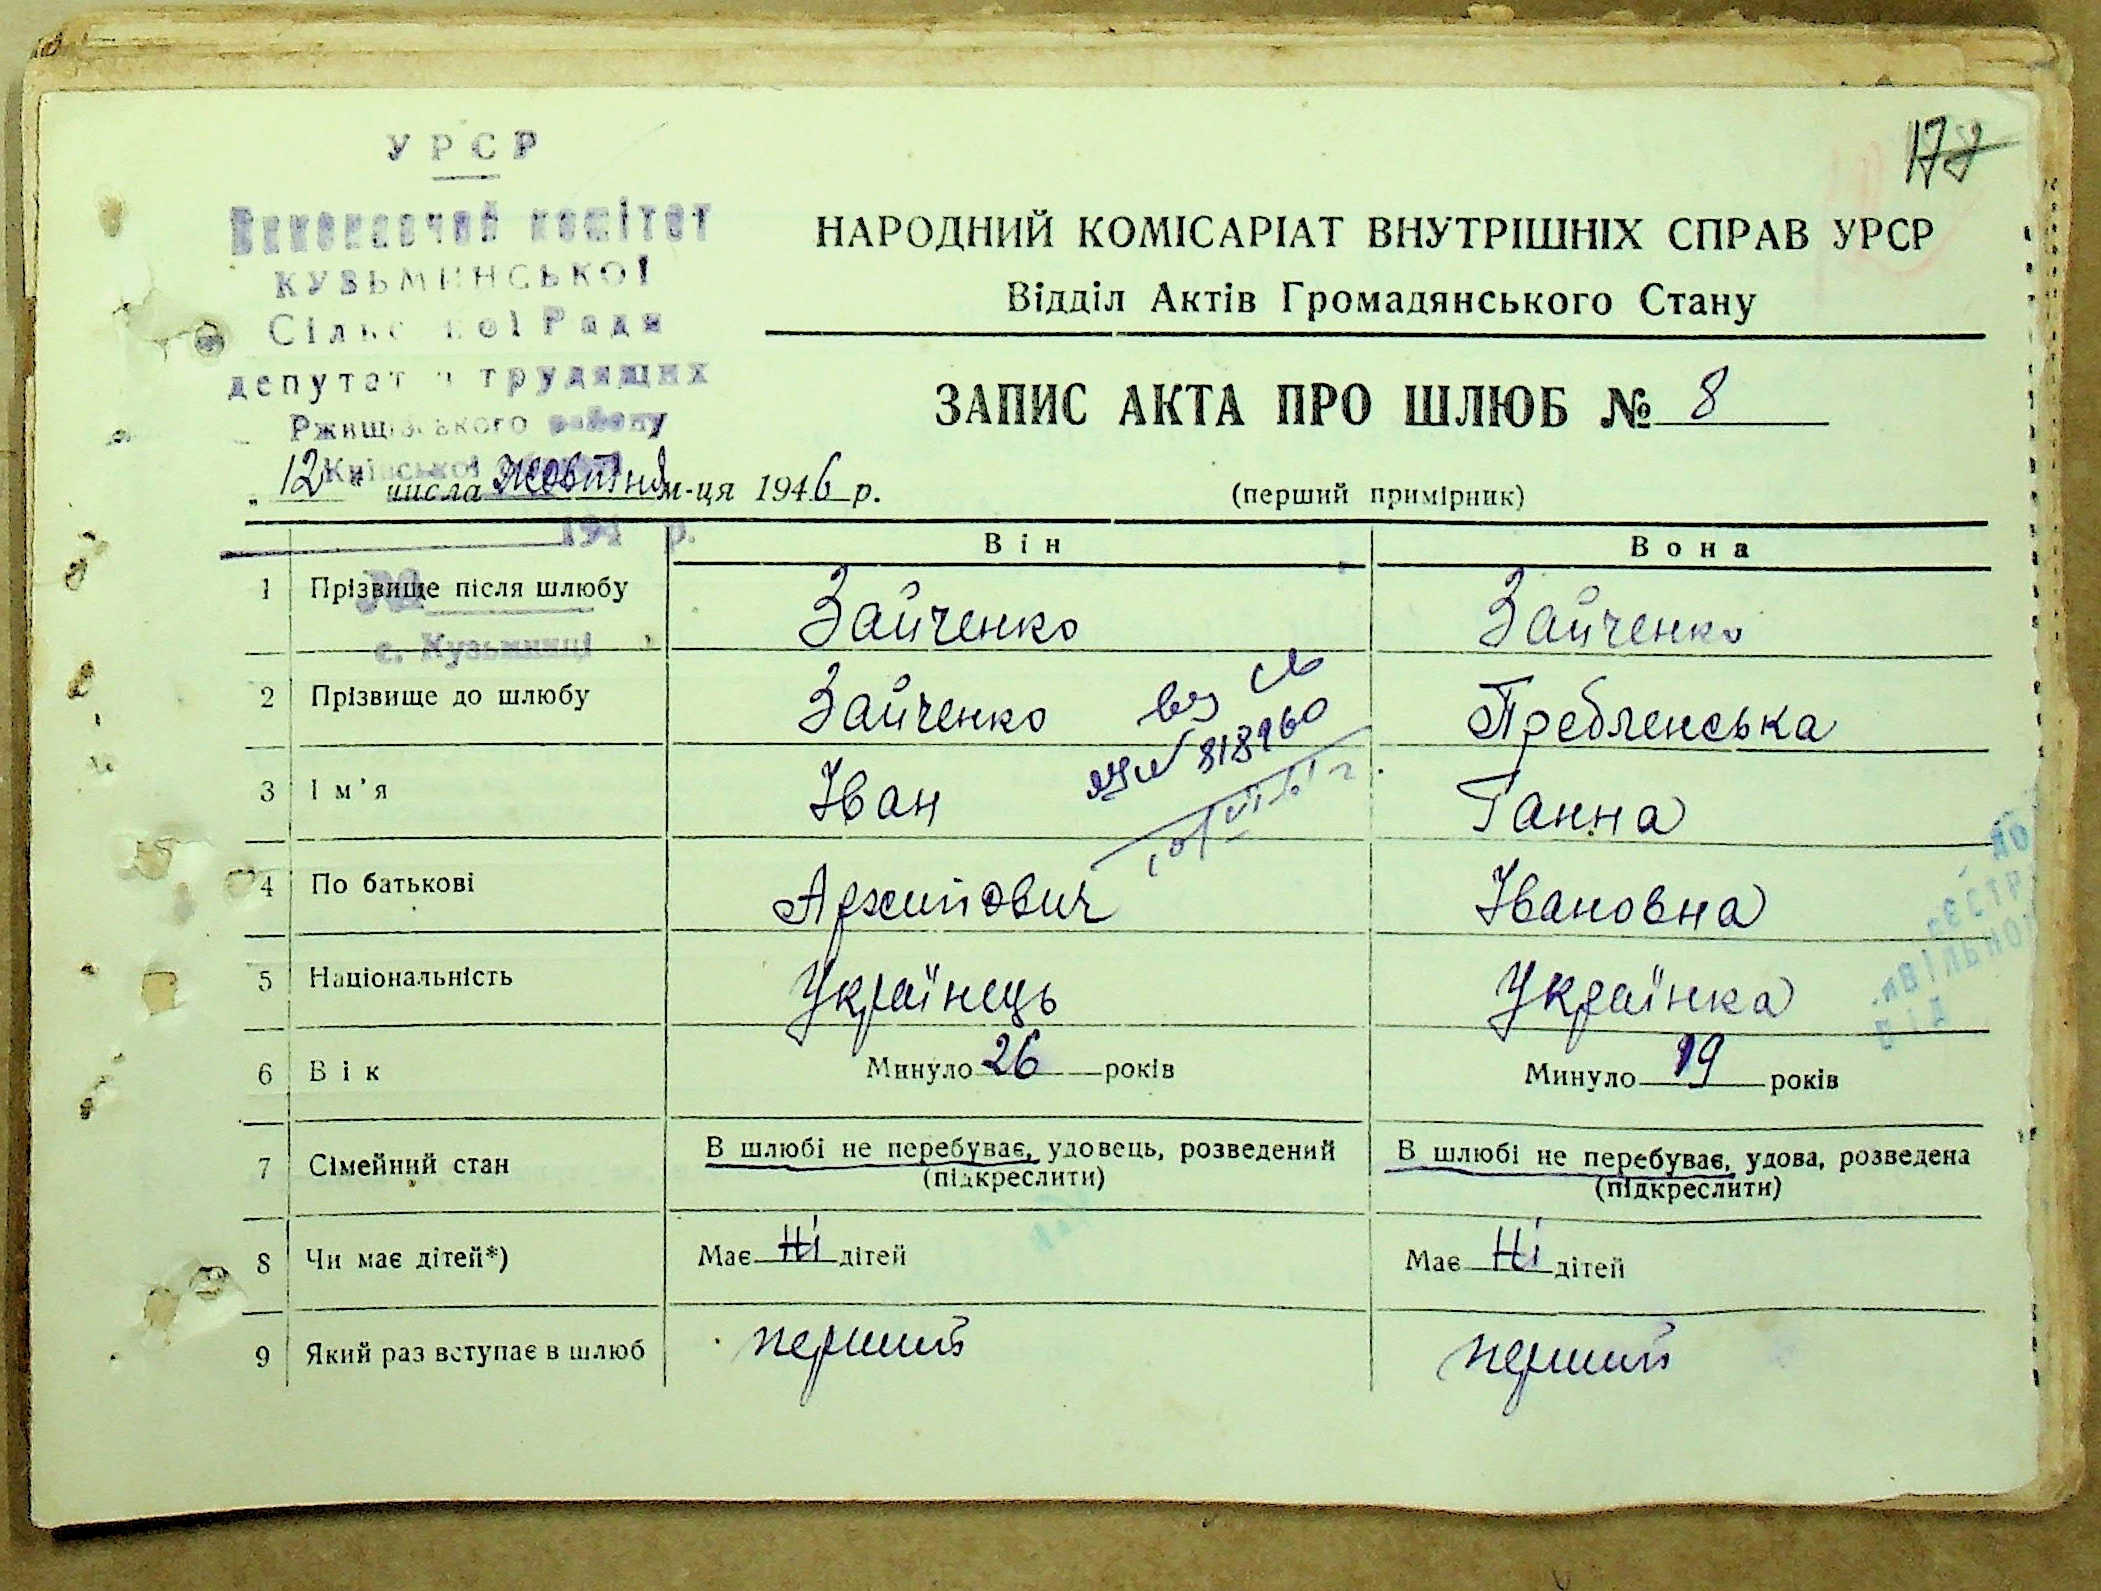 УРСР
Виконавчий комітет
КУЗЬМИНСЬКОЇ
Сільської Ради
депутатів трудящих
Ржищівського району
Київської
194 р.
№
с. Кузьминці
НАРОДНИЙ КОМІСАРІАТ ВНУТРІШНІХ СПРАВ УРСР
Відділ Актів Громадянського Стану
ЗАПИС АКТА ПРО ШЛЮБ № 8
„ 12 " числа Жовтня м-ця 1946 р.
(перший примірник)
Він Вона
1 Прізвище після шлюбу Зайченко Зайченко
2 Прізвище до шлюбу Зайченко Требленська
818960
3 Ім'я Іван Ганна
4 По батькові Архипович Івановна
5 Національність Українець Українка
6 Вік Минуло 26 років Минуло 19 років
7 Сімейний стан В шлюбі не перебуває, удовець, розведений В шлюбі не перебуває, удова, розведена
(підкреслити) (підкреслити)
8 Чи має дітей*) Має Ні дітей Має Ні дітей
9 Який раз вступає в шлюб перший перший